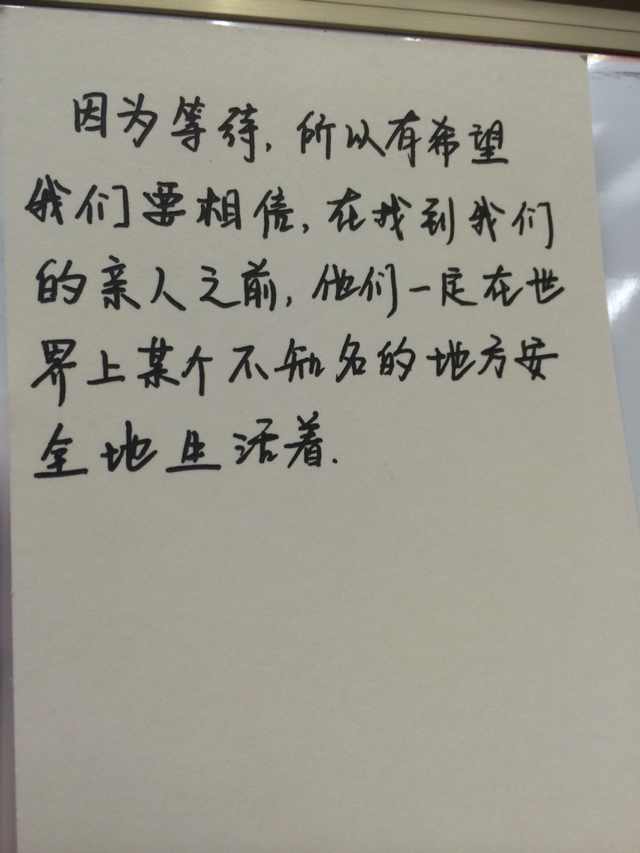 因为等待，所以有希望
我们要相信，在找到我们
的亲人之前，他们一定在世
界上某个不知名的地方安
全地生活着.